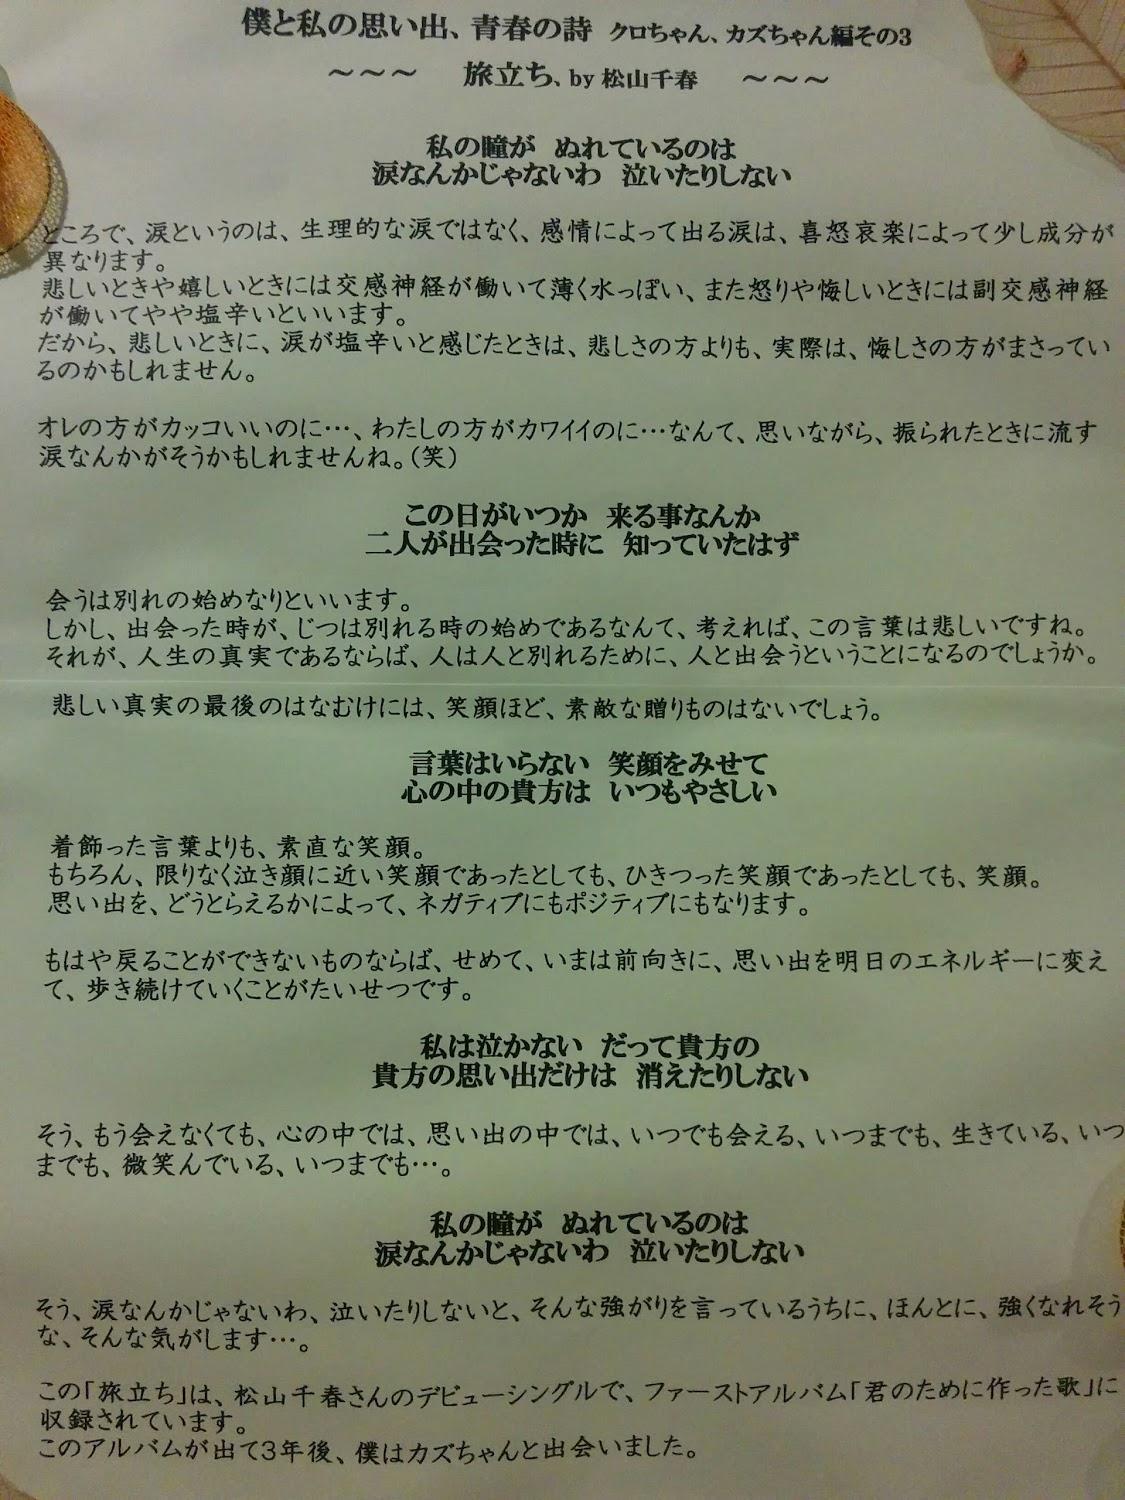 僕と私の思い出、青春の詩　クロちゃん、カズちゃん編その3
～～～　旅立ち、by 松山千春　～～～
私の瞳が　ぬれているのは
涙なんかじゃないわ　泣いたりしない
ところで、涙というのは、生理的な涙ではなく、感情によって出る涙は、喜怒哀楽によって少し成分が
異なります。
悲しいときや嬉しいときには交感神経が働いて薄く水っぽい、また怒りや悔しいときには副交感神経
が働いてやや塩辛いといいます。
だから、悲しいときに、涙が塩辛いと感じたときは、悲しさの方よりも、実際は、悔しさの方がまさってい
るのかもしれません。
オレの方がカッコいいのに…、わたしの方がカワイイのに…なんて、思いながら、振られたときに流す
涙なんかがそうかもしれませんね。（笑）
この日がいつか　来る事なんか
二人が出会った時に　知っていたはず
会うは別れの始めなりといいます。
しかし、出会った時が、じつは別れる時の始めであるなんて、考えれば、この言葉は悲しいですね。
それが、人生の真実であるならば、人は人と別れるために、人と出会うということになるのでしょうか。
悲しい真実の最後のはなむけには、笑顔ほど、素敵な贈りものはないでしょう。
言葉はいらない　笑顔をみせて
心の中の貴方は　いつもやさしい
着飾った言葉よりも、素直な笑顔。
もちろん、限りなく泣き顔に近い笑顔であったとしても、ひきつった笑顔であったとしても、笑顔。
思い出を、どうとらえるかによって、ネガティブにもポジティブにもなります。
もはや戻ることができないものならば、せめて、いまは前向きに、思い出を明日のエネルギーに変え
て、歩き続けていくことがたいせつです。
私は泣かない　だって貴方の
貴方の思い出だけは　消えたりしない
そう、もう会えなくても、心の中では、思い出の中では、いつでも会える、いつまでも、生きている、いつ
までも、微笑んでいる、いつまでも…。
私の瞳が　ぬれているのは
涙なんかじゃないわ　泣いたりしない
そう、涙なんかじゃないわ、泣いたりしないと、そんな強がりを言っているうちに、ほんとに、強くなれそう
な、そんな気がします…。
この「旅立ち」は、松山千春さんのデビューシングルで、ファーストアルバム「君のために作った歌」に
収録されています。
このアルバムが出て3年後、僕はカズちゃんと出会いました。